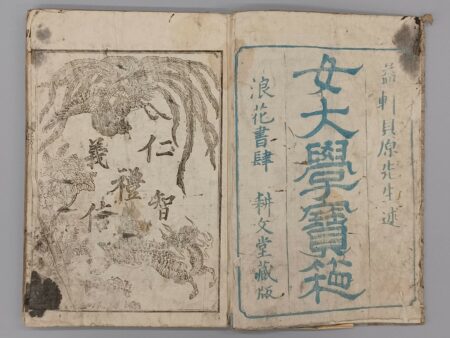 益軒貝原先生述
女大學寶箱
浪花書肆 耕文堂藏版
仁
義
禮
智
信